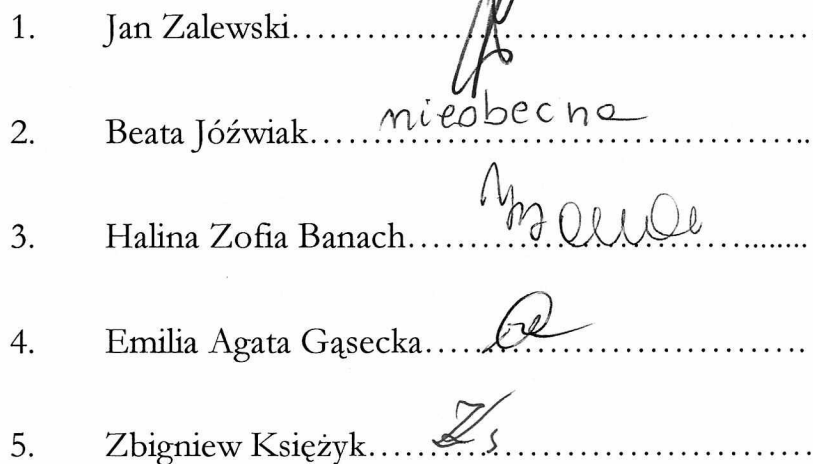 1. Jan Zalewski
2. Beata Jóźwiak nieobecna
3. Halina Zofia Banach
4. Emilia Agata Gąsecka
5. Zbigniew Księżyk